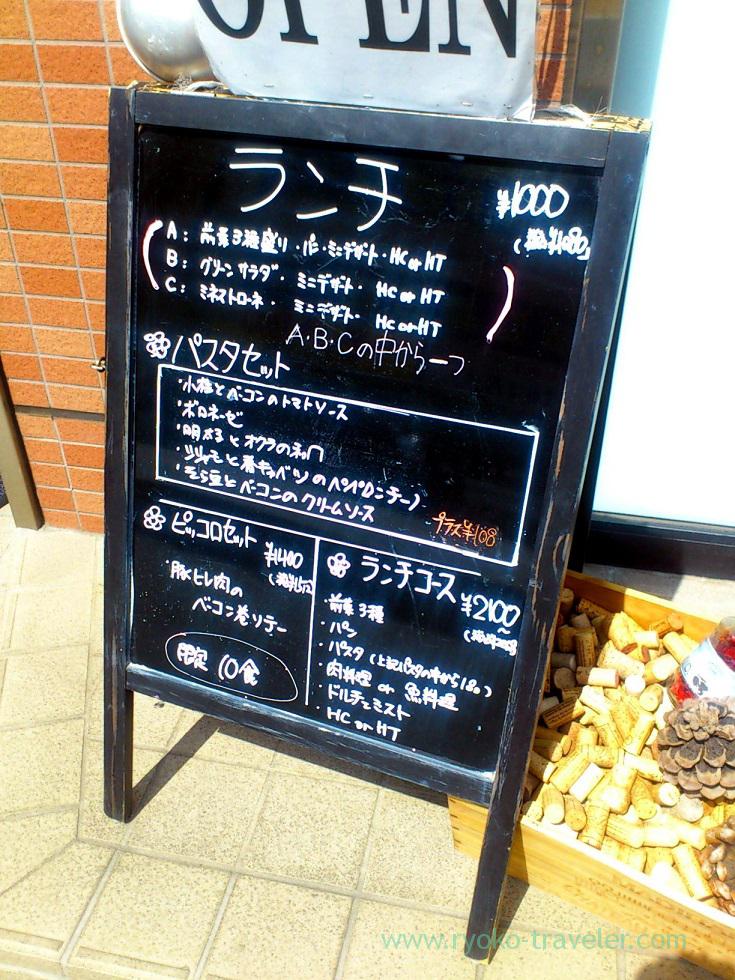 OPEN
ランチ
¥1000
(税込1080)
A: 前菜3種盛り・パン・ミニデザート・HC or HT
B: グリーンサラダ・ ミニデザート・ HC or HT
C: ミネストローネ・ ミニデザート・ HC or HT
A・B・Cの中から一つ
パスタセット
・小海老とベーコンのトマトソース
・ボロネーゼ
・明太子とオクラの
・と春キャベツのペペロンチーノ
・そら豆とベーコンのクリームソース
プラス¥108
ピッコロセット
¥1400
・豚ヒレ肉の
ベーコン巻ソテー
限定 10食
ランチコース
¥2100~
・前菜3種
・パン
・パスタ(上記パスタの中から1品)
・肉料理 or 魚料理
・ドルチェミスト
・HC or HT
www.ryoko-traveler.com